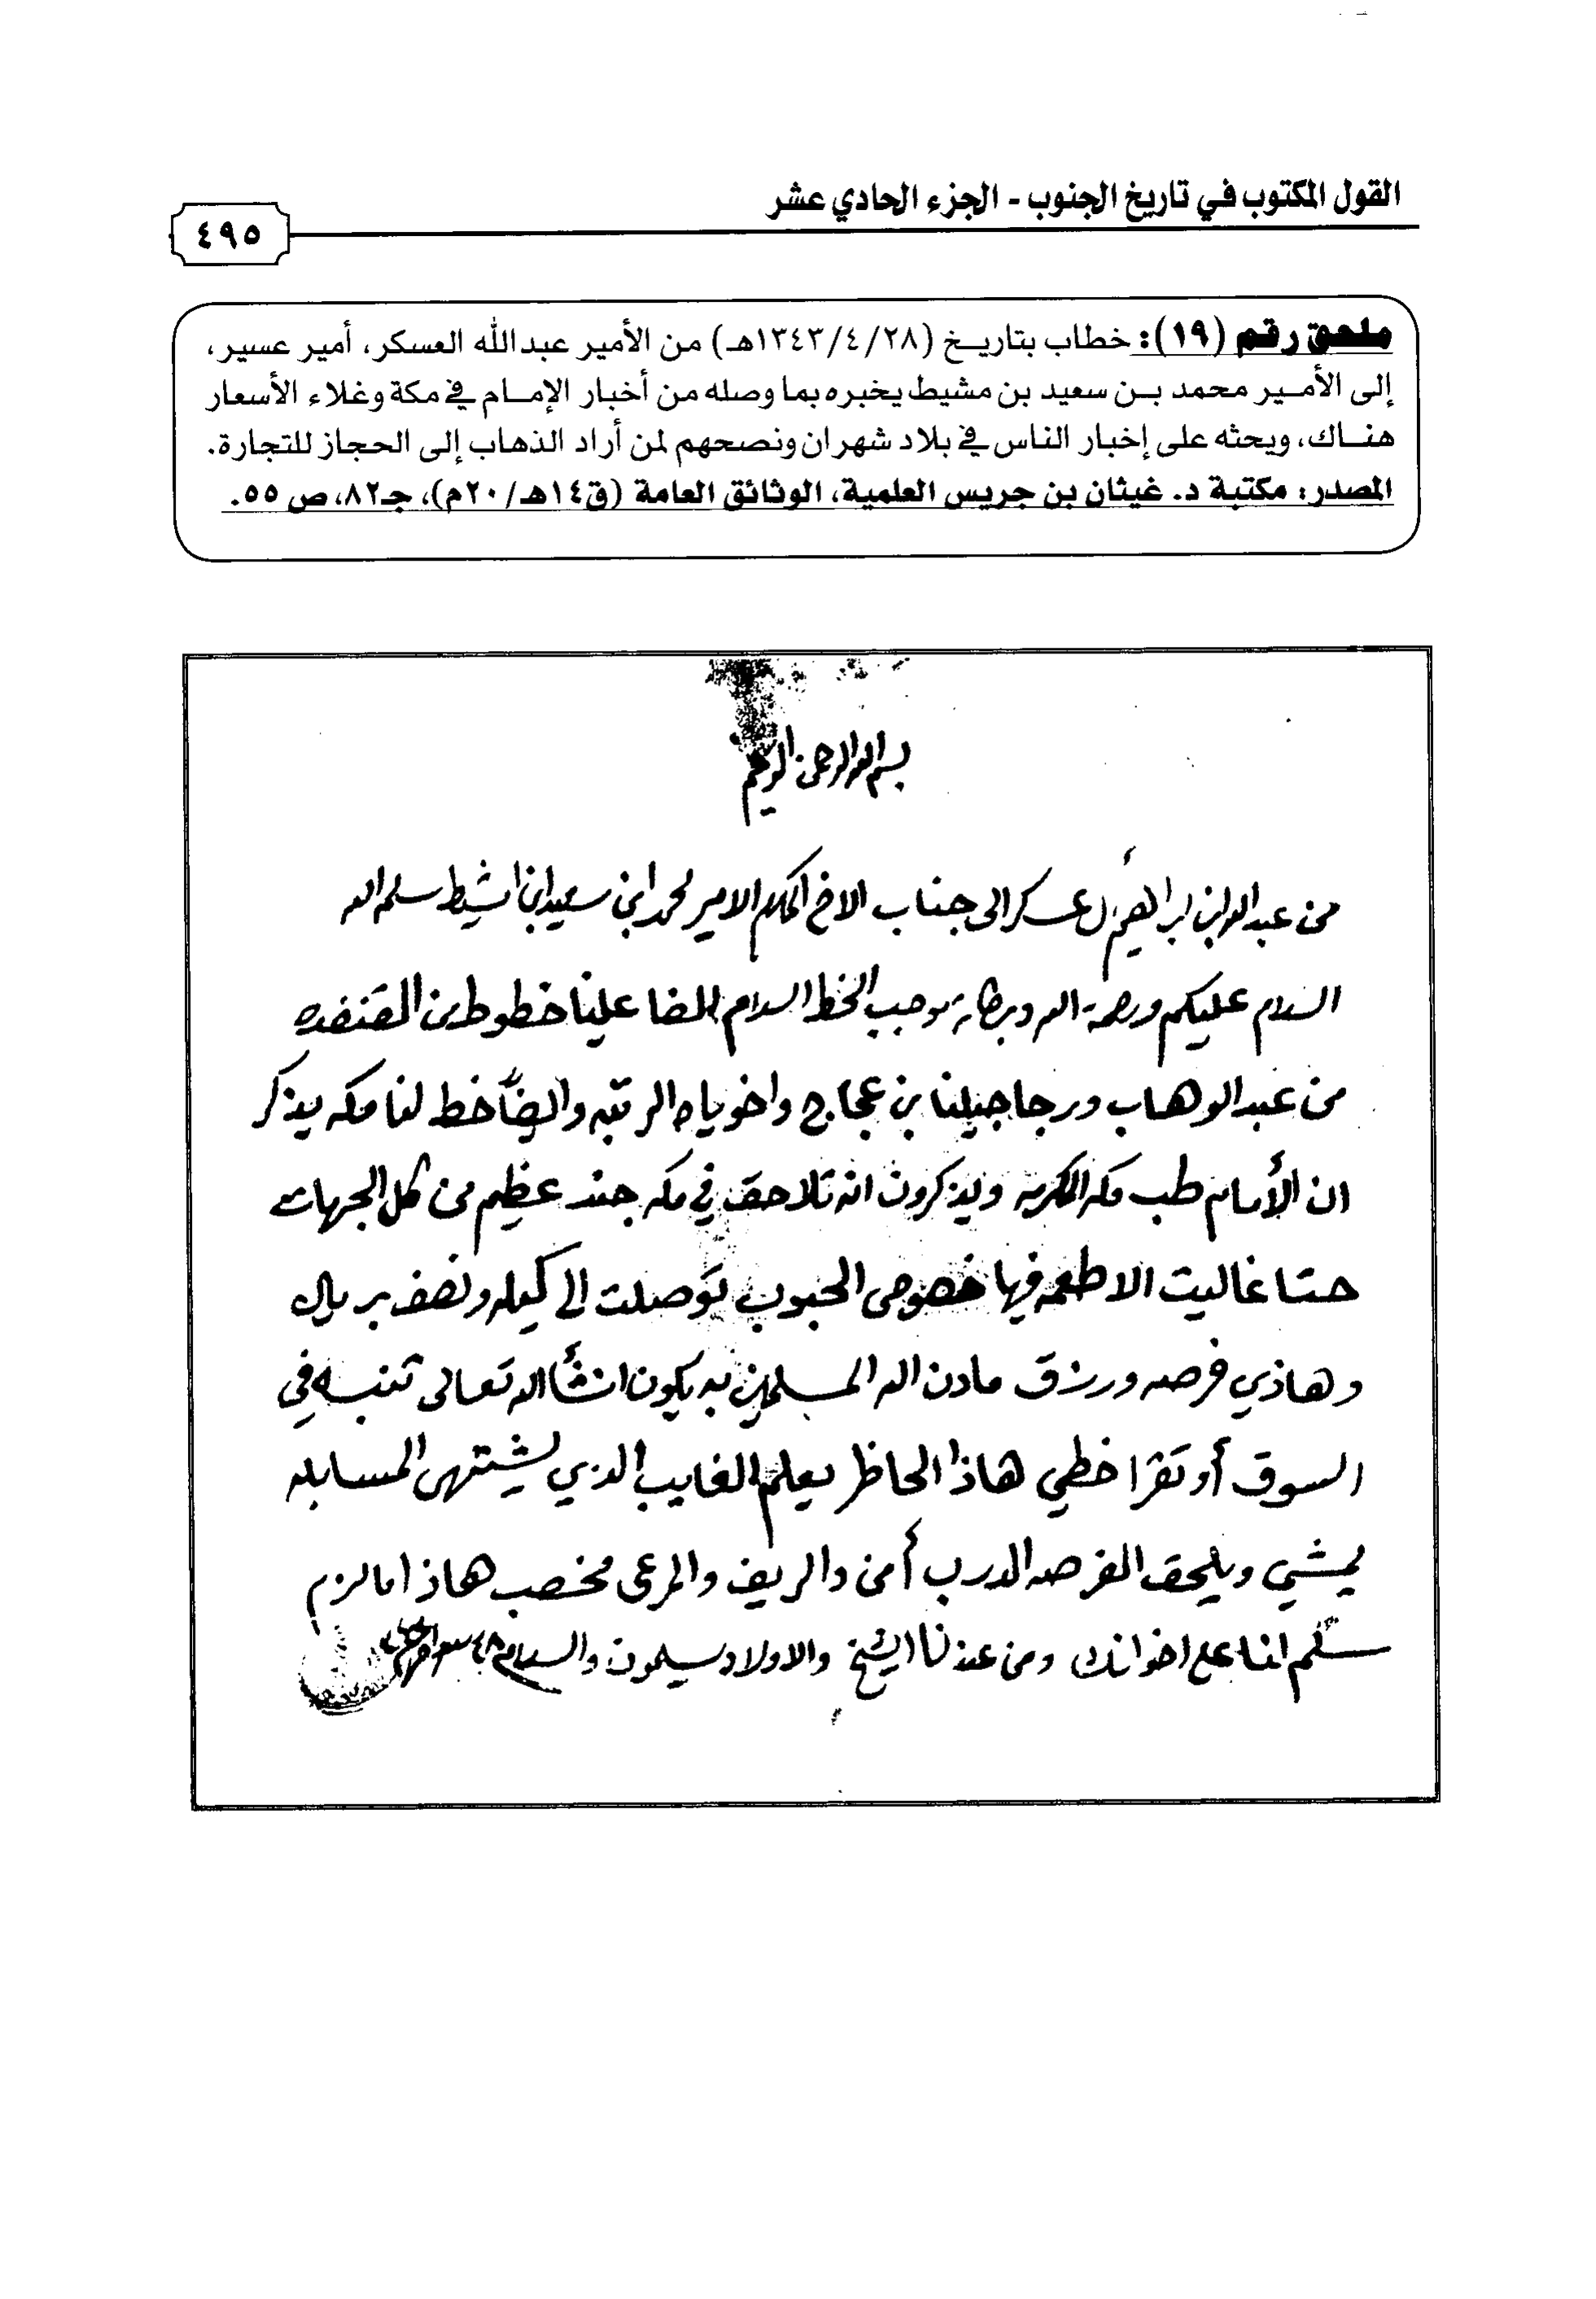 القول المكتوب في تاريخ الجنوب - الجزء الحادي عشر
٤٩٥
ملحق رقم (١٩): خطاب بتاريخ (١٣٤٣/٤/٢٨هـ) من الأمير عبدالله العسكر، أمير عسير،
إلى الأمير محمد بن سعيد بن مشيط يخبره بما وصله من أخبار الإمام في مكة وغلاء الأسعار
هناك، ويحثه على إخبار الناس في بلاد شهران ونصحهم لمن أراد الذهاب إلى الحجاز للتجارة.
المصدر: مكتبة د. غيثان بن جريس العلمية، الوثائق العامة (ق١٤هـ/٢٠م)، جـ٨٢، ص ٥٥.
بسم الله الرحمن الرحيم
من عبدالله ابن ابراهيم ال عسكر الى جناب الاخ المكرم الامير محمد ابن سعيد ابن امشيط سلمه الله
السلام عليكم ورحمة الله وبركاته موجب الخط السلام لفا علينا خطوط من القنفده
من عبد الوهاب ورجاجيلنا بن عجاج واخوياه الرتبه وايضاً خط لنا مكه يذكر
ان الأمام طب مكه المكرمه ويذكرون انه تلاحق في مكه جند عظيم من كل الجهات
حتا غاليت الاطعمه فيها خصوص الحبوب توصلت الى كيله ونصف بريال
وهاذي فرصه ورزق مادن الله المسلمين به يكون انشأ الله تعالى تنبه في
السوق أو تقرا خطي هاذا الحاظر يعلم الغايب الذي يشتهي المسابله
يمشي ويلحق الفرصه الدرب أمن والريف والمرعى مخصب هاذا مالزم
سلم لنا على اخوانك ومن عندنا الشيخ والاولاد يسلمون والسلام